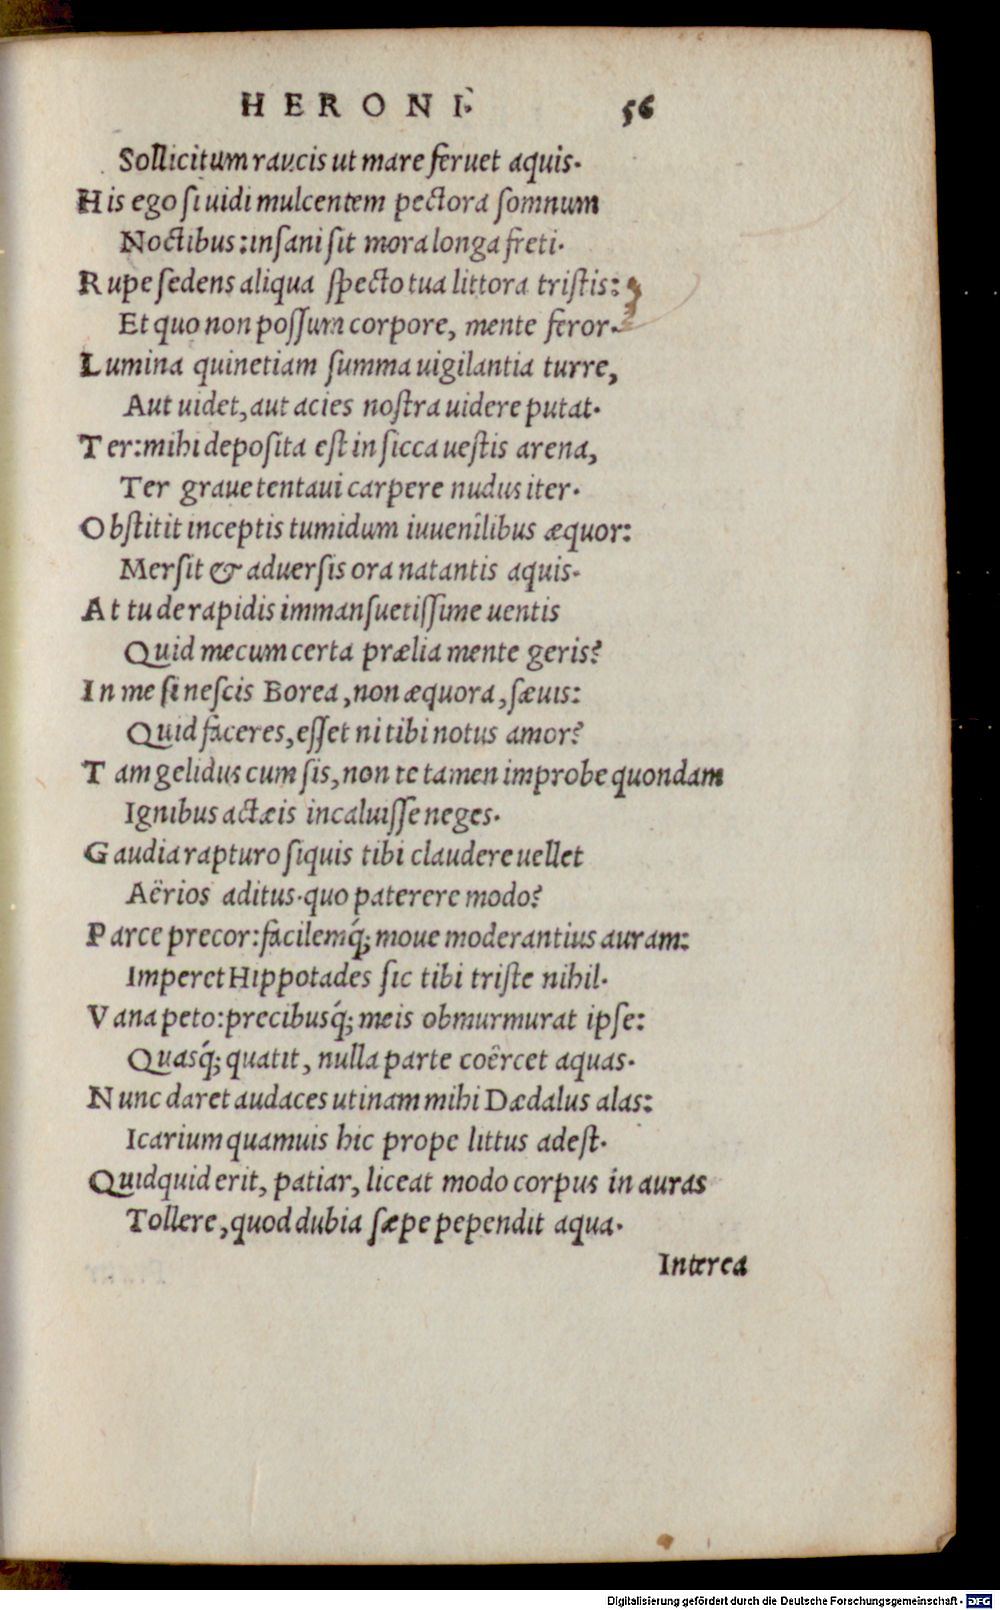 HERONI. 56
Sollicitum raucis ut mare feruet aquis.
His ego si uidi mulcentem pectora somnum
Noctibus: insani sit mora longa freti.
Rupe sedens aliqua specto tua littora tristis:
Et quo non possum corpore, mente feror.
Lumina quinetiam summa uigilantia turre,
Aut uidet, aut acies nostra uidere putat.
Ter: mihi deposita est in sicca uestis arena,
Ter graue tentaui carpere nudus iter.
Obstitit inceptis tumidum iuuenilibus æquor:
Mersit & aduersis ora natantis aquis.
At tu de rapidis immansuetissime uentis
Quid mecum certa prælia mente geris?
In me si nescis Borea, non æquora, sæuis:
Quid faceres, esset ni tibi notus amor?
Tam gelidus cum sis, non te tamen improbe quondam
Ignibus actæis incaluisse neges.
Gaudia rapturo siquis tibi claudere uellet
Aërios aditus. quo paterere modo?
Parce precor: facilemq́; moue moderantius auram:
Imperet Hippotades sic tibi triste nihil.
Vana peto: precibusq́; meis obmurmurat ipse:
Quasq́; quatit, nulla parte coërcet aquas.
Nunc daret audaces utinam mihi Dædalus alas:
Icarium quamuis hic prope littus adest.
Quidquid erit, patiar, liceat modo corpus in auras
Tollere, quod dubia sæpe pependit aqua.
Interea
Digitalisierung gefördert durch die Deutsche Forschungsgemeinschaft - DFG